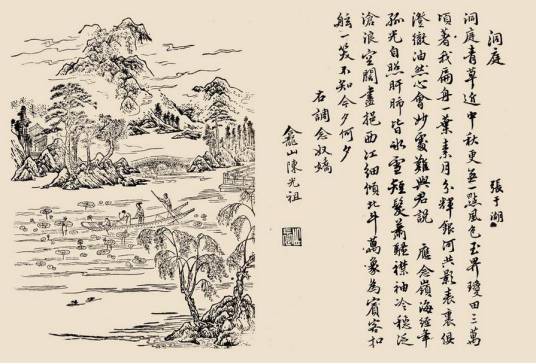 洞庭
張于湖
洞庭青草近中秋更無一點風色玉界瓊田三萬
頃著我扁舟一葉素月分輝銀河共影表裏俱
澄徹油然心會妙處難與君說 應念嶺海經年
孤光自照肝肺皆冰雪短髮蕭疏襟袖冷穩泛
滄浪空闊盡挹西江細傾北斗萬象為賓客扣
舷一笑不知今夕何夕
右調念奴嬌
龕山陳光祖